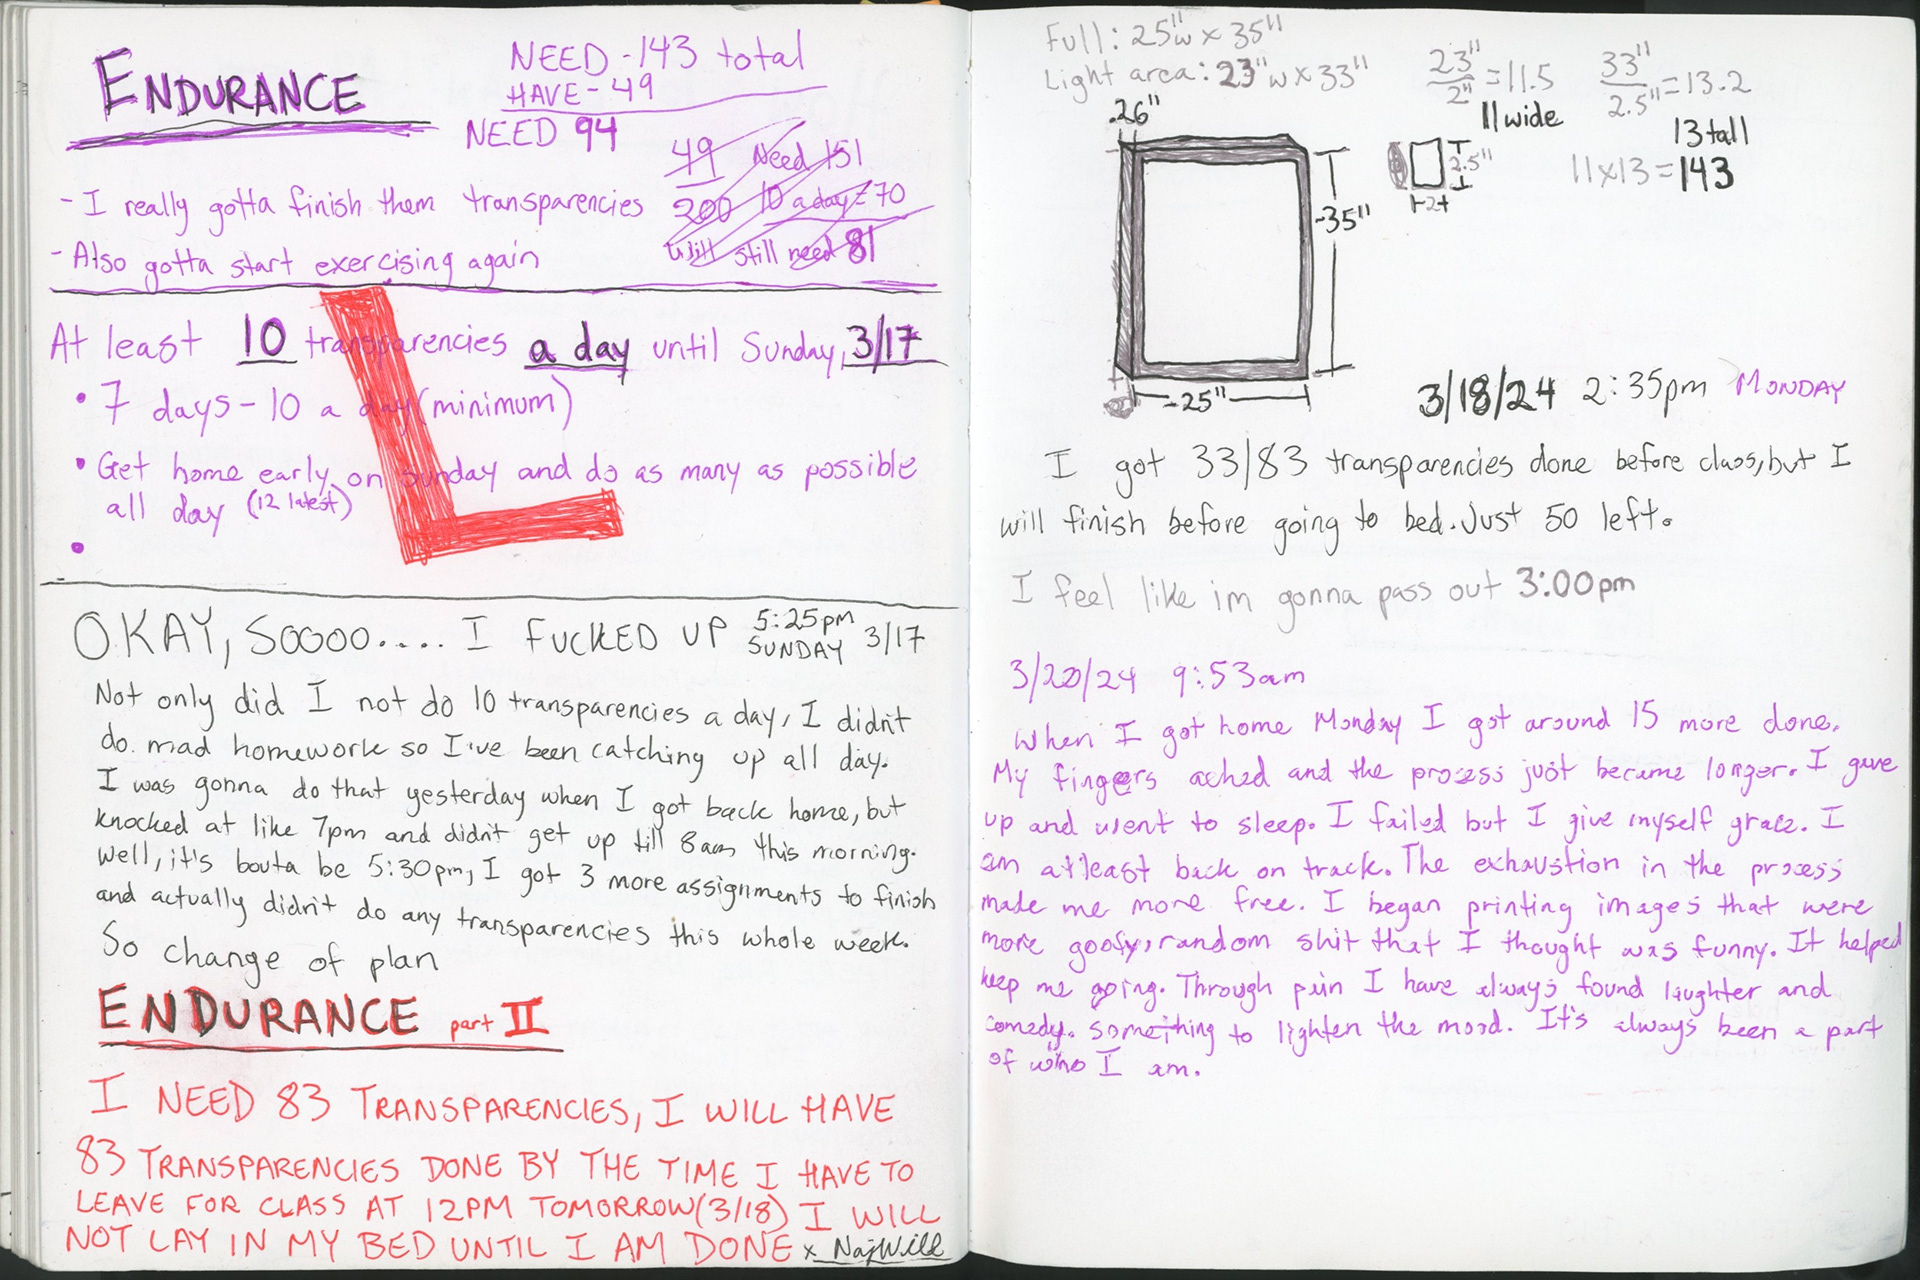 ENDURANCE
NEED - 143 total
HAVE - 49
NEED 94
49 Need 151
200 10 a day = 70
Will still need 81
- I really gotta finish them transparencies
- Also gotta start exercising again
At least 10 transparencies a day until Sunday, 3/17
• 7 days - 10 a day (minimum)
• Get home early on Sunday and do as many as possible
all day (12 latest)
•
L
OKAY, SOOOO.... I FUCKED UP 5:25pm
SUNDAY 3/17
Not only did I not do 10 transparencies a day, I didn't
do mad homework so I've been catching up all day.
I was gonna do that yesterday when I got back home, but
knocked at like 7pm and didn't get up till 8am this morning.
Well, it's bouta be 5:30pm, I got 3 more assignments to finish
and actually didn't do any transparencies this whole week.
So change of plan
ENDURANCE part II
I NEED 83 TRANSPARENCIES, I WILL HAVE
83 TRANSPARENCIES DONE BY THE TIME I HAVE TO
LEAVE FOR CLASS AT 12PM TOMORROW (3/18) I WILL
NOT LAY IN MY BED UNTIL I AM DONE x NajWill
Full: 25"w x 35"
Light area: 23"w x 33"
23"/2" = 11.5
11 wide
33"/2.5" = 13.2
13 tall
11x13 = 143
.26"
2.5"
-2-
-35"
-25"
3/18/24 2:35pm MONDAY
I got 33/83 transparencies done before class, but I
will finish before going to bed. Just 50 left.
I feel like im gonna pass out 3:00pm
3/20/24 9:53am
When I got home Monday I got around 15 more done.
My fingers ached and the process just became longer. I gave
up and went to sleep. I failed but I give myself grace. I
am atleast back on track. The exhaustion in the process
made me more free. I began printing images that were
more goofy, random shit that I thought was funny. It helped
keep me going. Through pain I have always found laughter and
comedy. Something to lighten the mood. It's always been a part
of who I am.